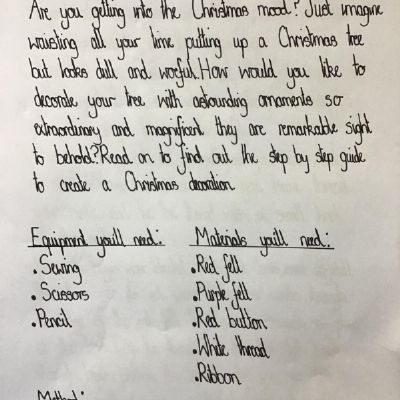 Are you getting into the Christmas mood? Just imagine
waisting all your time putting up a Christmas tree
but looks dull and woeful. How would you like to
decorate your tree with astounding ornaments so
extraordinary and magnificent they are remarkable sight
to behold? Read on to find out the step by step guide
to create a Christmas decoration
Equipment you'll need: Materials you'll need:
• Sewing • Red felt
• Scissors • Purple felt
• Pencil • Red button
• White thread
• Ribbon
Method: